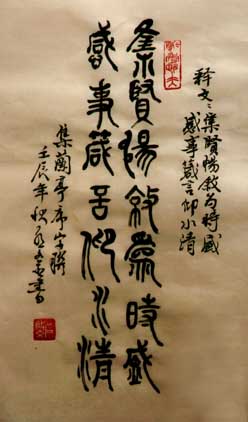 释文：集賢暢叙为時盛
感事箴言仰水清
集賢暢敘為時盛
感事箴言仰水清
集蘭亭序字聯
壬辰年秋
書